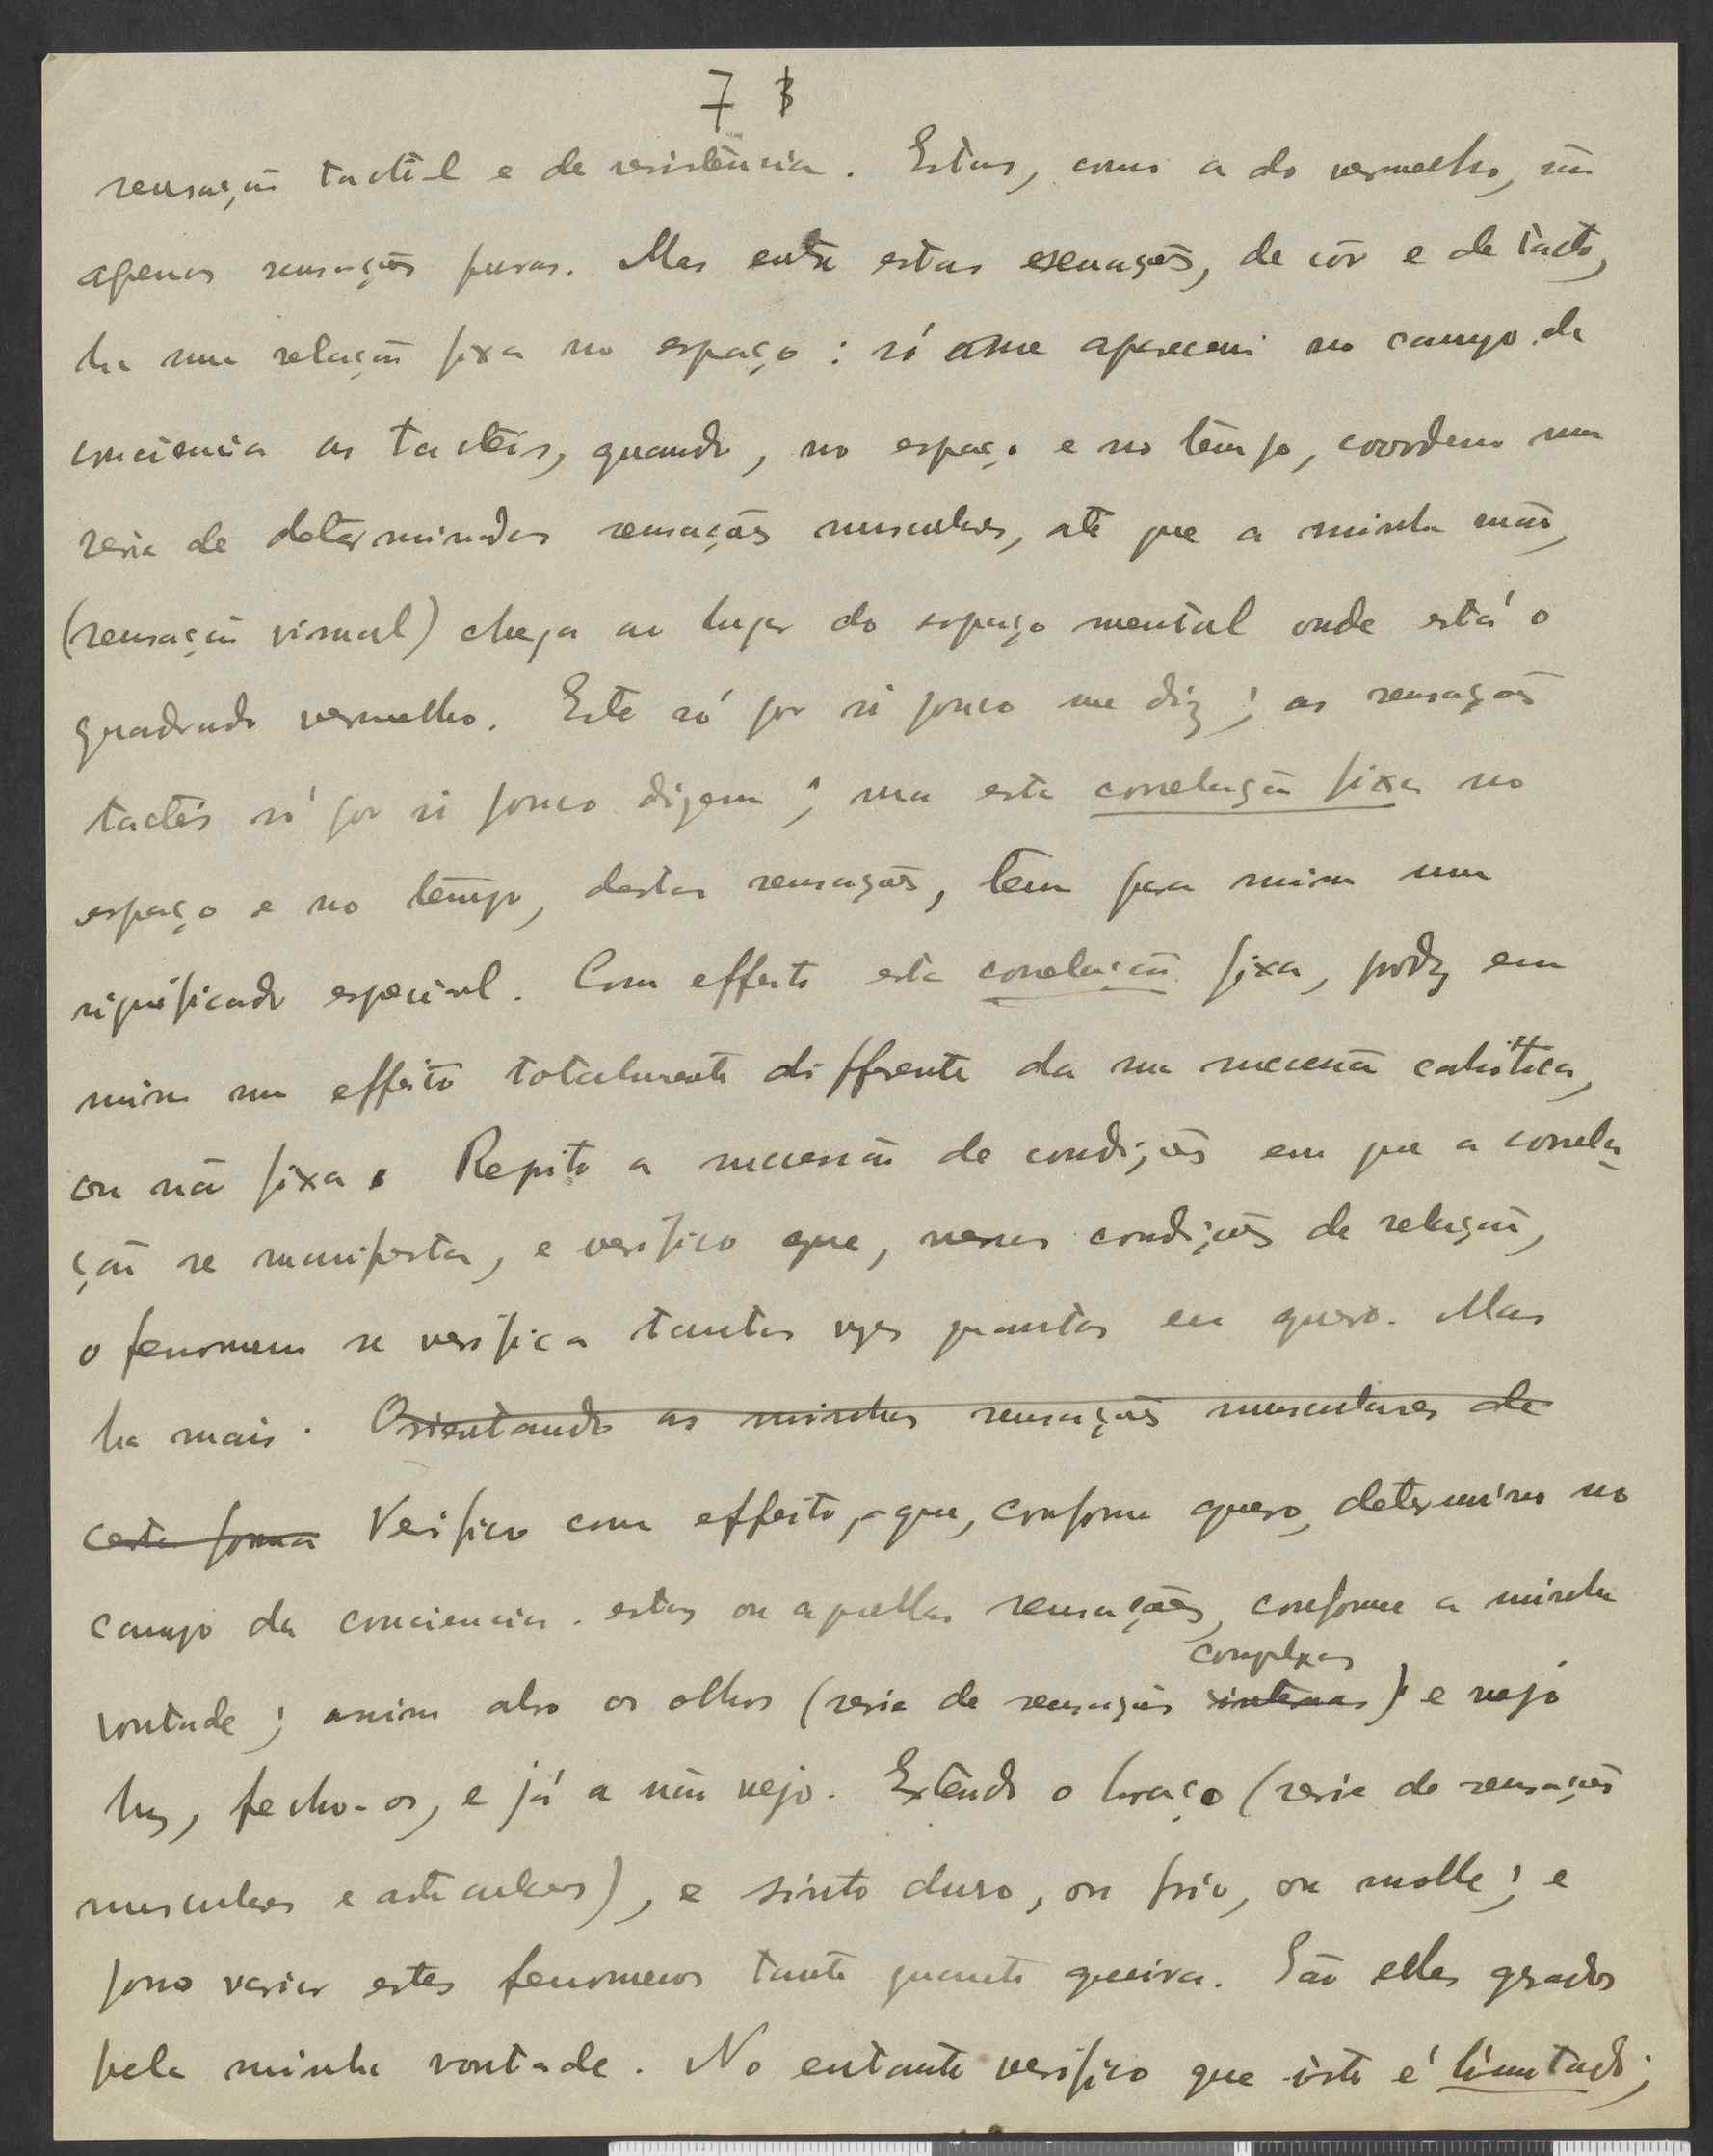 7
sensação tactil e de resistencia. Estas, como a do vermelho, são
apenas sensações puras. Mas entre estas sensações, de côr e de tacto,
ha uma relação fixa no espaço : só me aparecem no campo da
conciencia as tacteis, quando, no espaço e no tempo, coordeno uma
serie de determinadas sensações musculares, até que a minha mão,
(sensação visual) chega ao lugar do espaço mental onde está o
quadrado vermelho. Este só por si pouco me diz ; as sensações
tacteis só por si pouco dizem ; mas esta correlação fixa no
espaço e no tempo, destas sensações, tem para mim um
significado especial. Com effeito esta correlação fixa, produz em
mim um effeito totalmente differente da sucessão cahotica,
ou não fixa. Repito a sucessão de condições em que a correla-
ção se manifesta, e verifico que, nessas condições de relação,
o fenomeno se verifica tantas vezes quantas eu quero. Mas
ha mais. Orientando as minhas sensações musculares de
certa forma Verifico com effeito, que, conforme quero, determino no
campo da conciencia estas ou aquellas sensações, conforme a minha
complexas
vontade ; assim abro os olhos (serie de sensações internas) e vejo
luz, fecho-os, e já a não vejo. Extendo o braço (serie de sensações
musculares e articulares), e sinto duro, ou frio, ou molle ; e
posso variar estes fenomenos tanto quanto queira. São elles gerados
pela minha vontade. No entanto verifico que isto é limitado ;